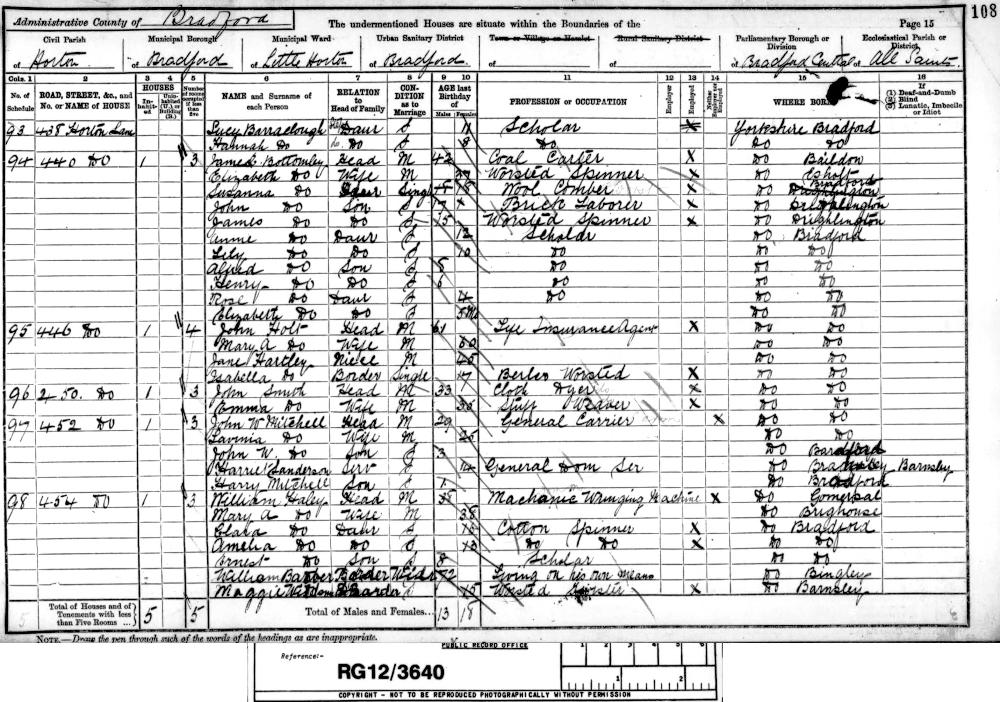 Administrative County of Bradford The undermentioned Houses are situate within the Boundaries of the Page 15 108
Civil Parish Municipal Borough Municipal Ward Urban Sanitary District Town or Village or Hamlet Rural Sanitary District Parliamentary Borough or Division Ecclesiastical Parish or District
of Horton of Bradford of Little Horton of Bradford of of of Bradford Central of All Saints
Cols. 1 2 3 4 5 6 7 8 9 10 11 12 13 14 15 16
No. of Schedule ROAD, STREET, &c., and No. or NAME of HOUSE HOUSES In-habited Unin-habited (U.) or Building (B.) Number of rooms occupied if less than five NAME and Surname of each Person RELATION to Head of Family CON-DITION as to Marriage AGE last Birthday of Males Females PROFESSION or OCCUPATION Employer Employed Neither Employer nor Employed WHERE BORN If (1) Deaf-and-Dumb (2) Blind (3) Lunatic, Imbecile or Idiot
93 438 Horton Lane Lucy Barraclough Daur S 11 Scholar X Yorkshire Bradford
Hannah Do Do S 8 Do Do Do
94 440 Do 1 3 James Bottomley Head M 42 Coal Carter X Do Baildon
Elizabeth Do Wife M Worsted Spinner X Do Esholt
Susanna Do Daur Single 18 Wool Comber X Do Bradford
John Do Son S 17 Brick Laborer X Do Drighlington
James Do Do S 15 Worsted Spinner X Do Drighlington
Annie Do Daur S 12 Scholar Do Bradford
Lily Do Do S 10 Do Do Do
Alfred Do Son S 8 Do Do Do
Henry Do Do S 6 Do Do Do
Rose Do Daur S 4 Do Do Do
Elizabeth Do Do S 5 Mo Do Do
95 446 Do 1 4 John Holt Head M 61 Life Insurance Agent X Do Do
Mary A Do Wife M 60 Do Do
Jane Hartley Niece M 45 Do Do
Isabella Do Border Single 17 Berler Worsted X Do Do
96 450. Do 1 3 John Smith Head M 33 Cloth Dyer X Do Do
Emma Do Wife M 36 Stuff Weaver X Do Do
97 452 Do 1 3 John W Mitchell Head M 29 General Carrier X Do Do
Lavinia Do Wife M 25 Do Do
John W. Do Son S 3 Do Bradford
Harriet Sanderson Serv S 14 General Dom Ser Do Barnsley
Harry Mitchell Son S 1 Do Bradford
98 454 Do 1 3 William Haley Head M 38 Machanic Wringing Machine X Do Gomersal
Mary A Do Wife M 38 Do Brighouse
Clara Do Daur S 15 Cotton Spinner X Do Bradford
Amelia Do Do S 13 Do Do X Do Do
Ernest Do Son S 8 Scholar Do Do
William Barber Boarder Widr 72 Living on his own means Do Bingley
Maggie Boarder S 15 Worsted X Do Barnsley
Total of Houses and of Tenements with less than Five Rooms ... 5 5 Total of Males and Females... 13 18
NOTE.—Draw the pen through such of the words of the headings as are inappropriate.
PUBLIC RECORD OFFICE 1 2 3 4 5 6
Reference:-
RG12/3640
COPYRIGHT - NOT TO BE REPRODUCED PHOTOGRAPHICALLY WITHOUT PERMISSION